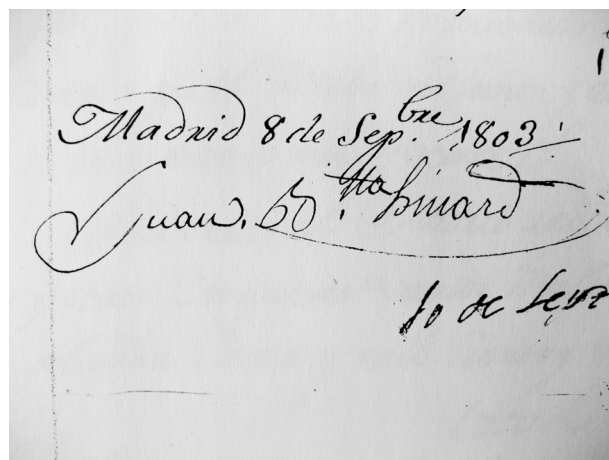 Madrid 8 de Sep.bre 1803
Juan. B.tta Liñard
10 de Sep